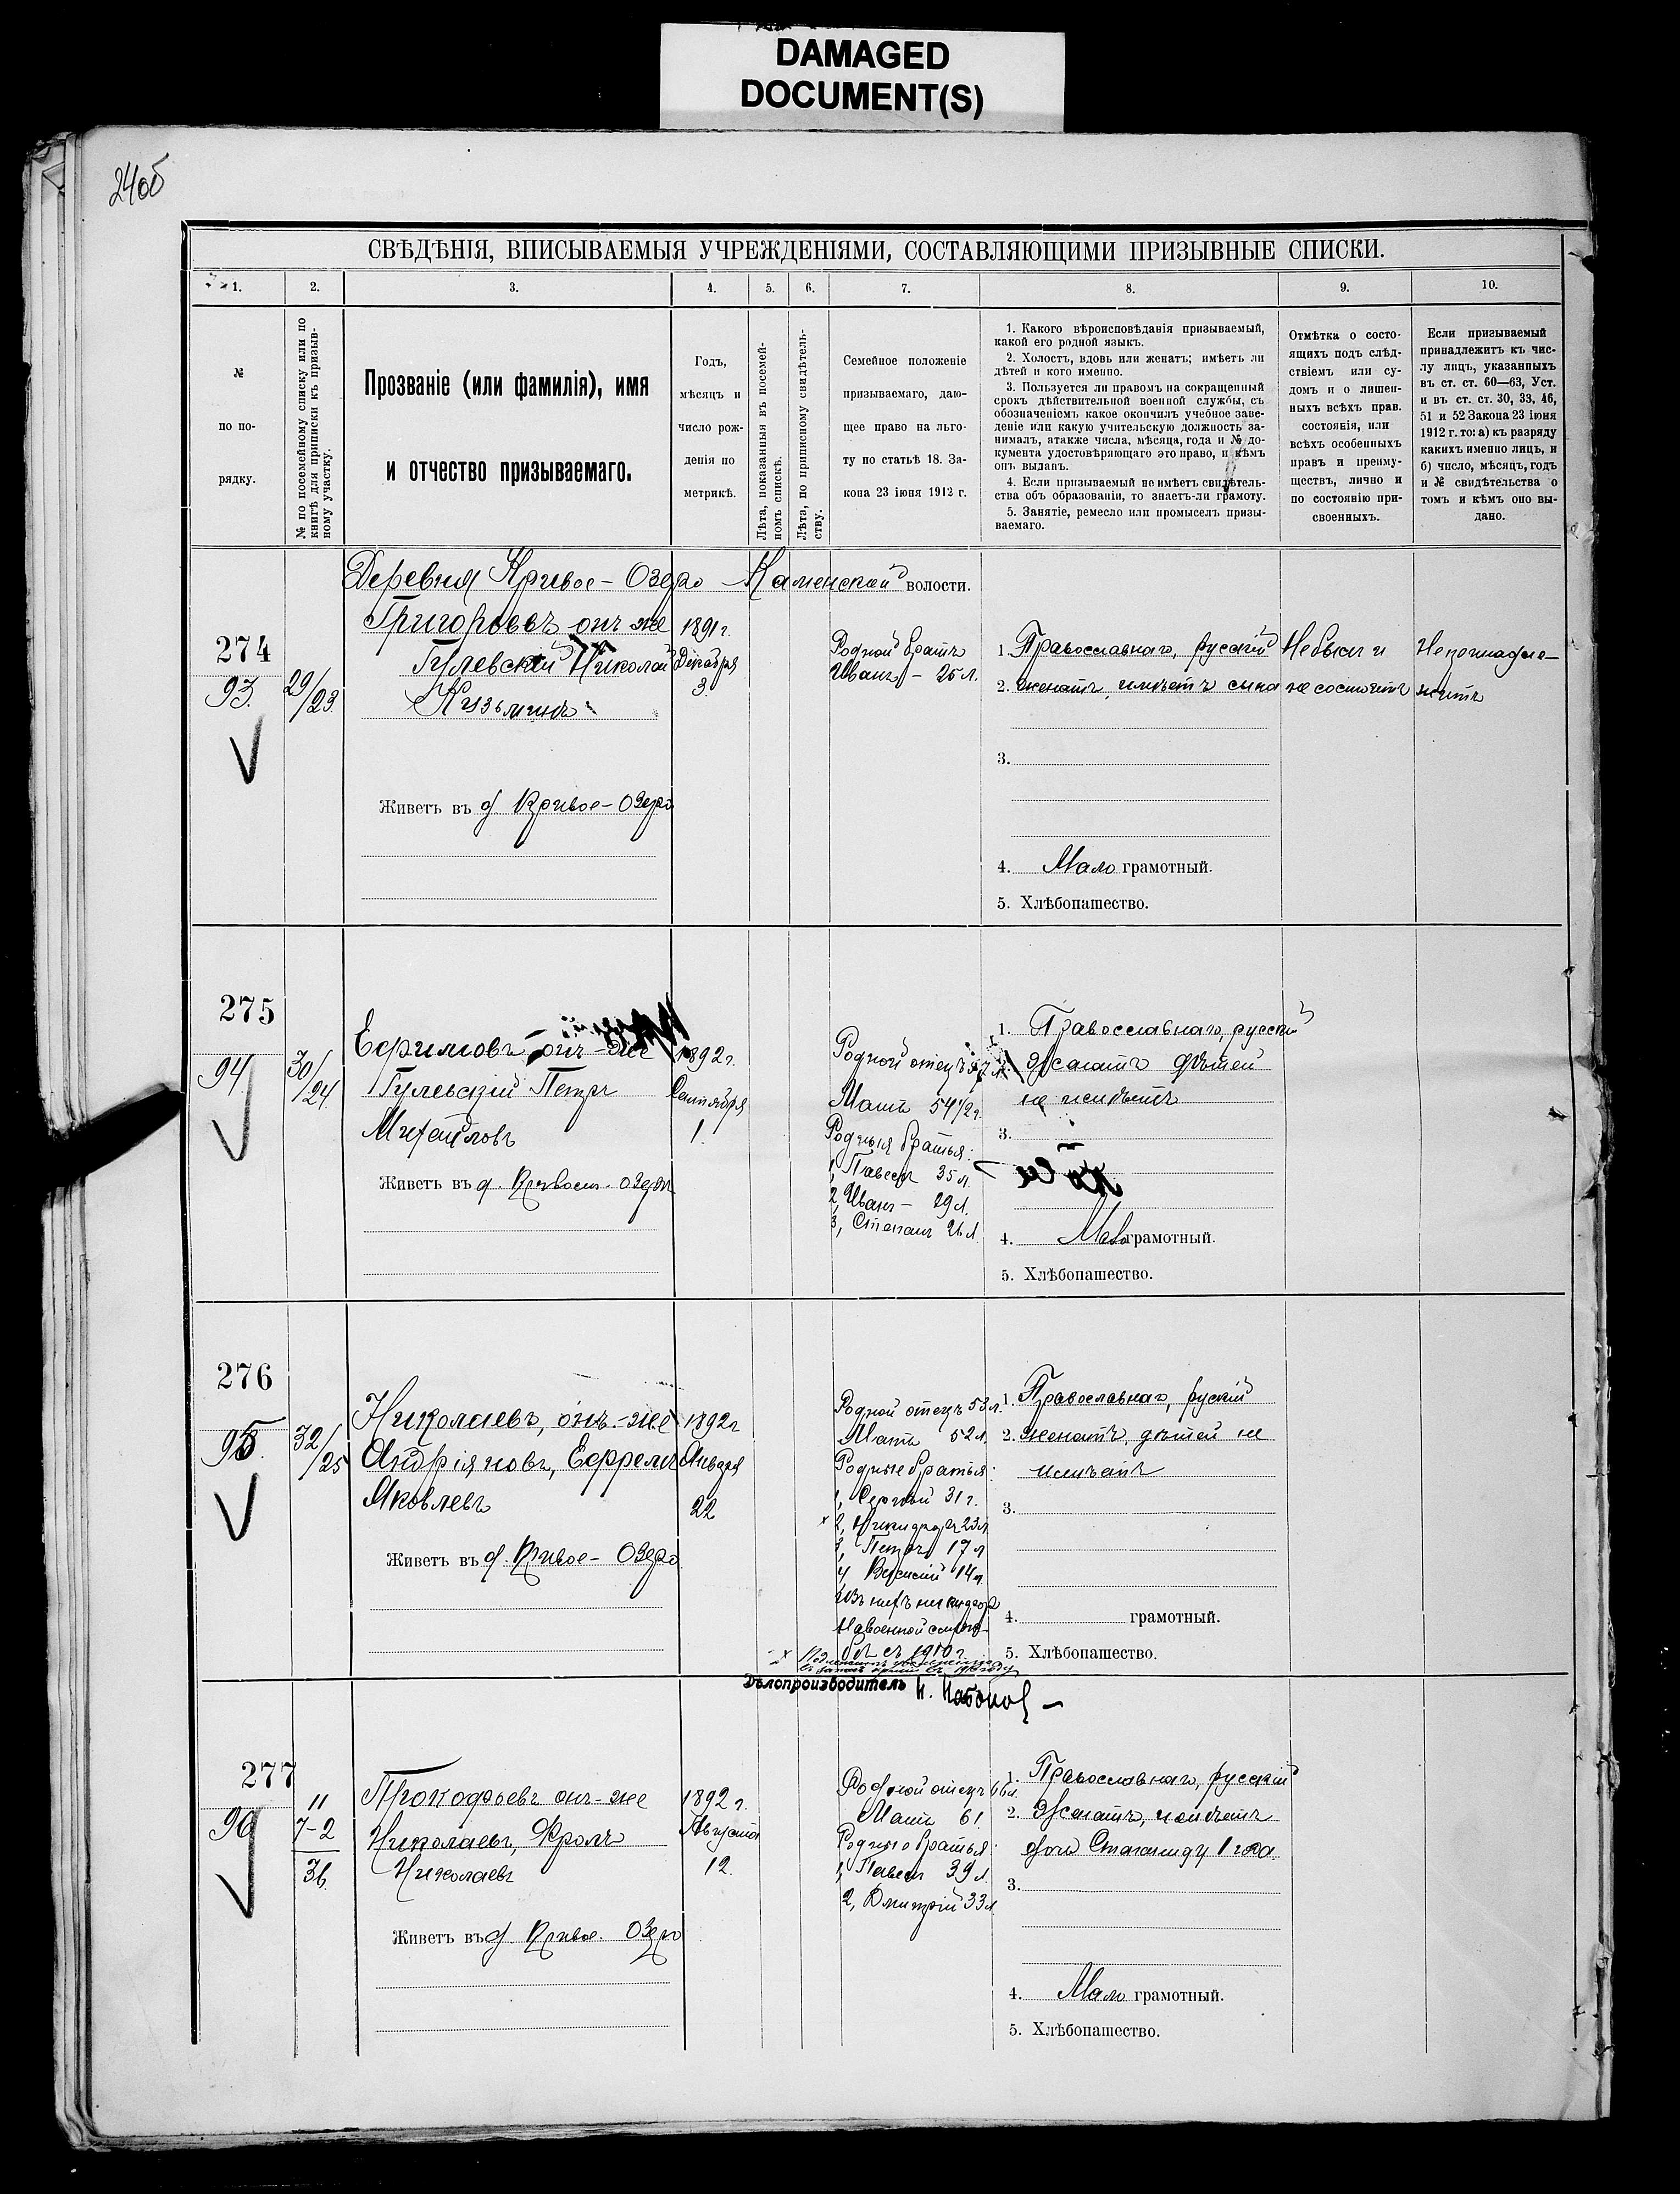 DAMAGED
DOCUMENT(S)
240б
СВѢДѢНІЯ, ВПИСЫВАЕМЫЯ УЧРЕЖДЕНІЯМИ, СОСТАВЛЯЮЩИМИ ПРИЗЫВНЫЕ СПИСКИ.
1. 2. 3. 4. 5. 6. 7. 8. 9. 10.
№
по по-
рядку.
№ по посемейному списку или по
книгѣ для приписки къ призыв-
ному участку.
Прозваніе (или фамилія), имя
и отчество призываемаго.
Годъ,
мѣсяцъ и
число рож-
денія по
метрикѣ.
Лѣта, показанныя въ посемей-
номъ спискѣ.
Лѣта, по приписному свидѣтель-
ству.
Семейное положеніе
призываемаго, даю-
щее право на льго-
ту по статьѣ 18. За-
кона 23 іюня 1912 г.
1. Какого вѣроисповѣданія призываемый,
какой его родной языкъ.
2. Холостъ, вдовъ или женатъ; имѣетъ ли
дѣтей и кого именно.
3. Пользуется ли правомъ на сокращенный
срокъ дѣйствительной военной службы, съ
обозначеніемъ какое окончилъ учебное заве-
деніе или какую учительскую должность за-
нималъ, атакже числа, мѣсяца, года и № до-
кумента удостовѣряющаго это право, и кѣмъ
онъ выданъ.
4. Если призываемый не имѣетъ свидѣтель-
ства объ образованіи, то знаетъ-ли грамоту.
5. Занятіе, ремесло или промыселъ призы-
ваемаго.
Отмѣтка о состо-
ящихъ подъ слѣд-
ствіемъ или су-
домъ и о лишен-
ныхъ всѣхъ прав.
состоянія, или
всѣхъ особенныхъ
правъ и преиму-
ществъ, лично и
по состоянію при-
своенныхъ.
Если призываемый
принадлежитъ къ чис-
лу лицъ, указанныхъ
въ ст. ст. 60—63, Уст.
и въ ст. ст. 30, 33, 46,
51 и 52 Закона 23 іюня
1912 г. то: а) къ разряду
какихъ именно лицъ, и
б) число, мѣсяцъ, годъ
и № свидѣтельства о
томъ и кѣмъ оно вы-
дано.
Деревня Кривое-Озеро Каменской волости.
274
93.
29/23
Григорьевъ онъ же
Гулевскій Николай
Кузьминъ
Живетъ въ д. Кривое-Озеро
1891 г.
Декабря
3.
Родной братъ
Иванъ – 25 л.
1. Православнаго, русскій
2. женатъ имѣетъ сына
3.
4. Мало грамотный.
5. Хлѣбопашество.
Небылъ и
не состоитъ
Непринадле-
житъ
275
94.
30/24
Ефимовъ, онъ-же
Гулевскій Петръ
Михайловъ
Живетъ въ д. Кривомъ-озерѣ
1892 г.
Сентября
1.
Родной отецъ 57 л.
Мать 54 1/2 г.
Родныя братья:
1, Павелъ 35 л.
2, Иванъ – 29 л.
3, Степанъ 26 л.
1. Православнаго, русскій
Женатъ дѣтей
не имѣетъ
3.
4. Мало грамотный.
5. Хлѣбопашество.
276
95.
32/25
Николаевъ, онъ-же
Андріяновъ, Ефремъ
Яковлевъ
Живетъ въ д. Кривое-Озеро
1892 г
Января
22
Родной отецъ 53 л.
Мать 52 л.
Родные братья:
1, Сергѣй 31 г.
x 2, Никифоръ 23 л.
3, Петръ 17 л
4 Василій 14 л.
Изъ нихъ никифоръ
На военной служ-
бѣ съ 1910 г.
1. Православнаго, рускій
2. Женатъ, дѣтей не
имѣетъ
3.
4. грамотный.
5. Хлѣбопашество.
Дѣлопроизводитель
277
96
11
7-2
36.
Прокофьевъ онъ-же
Николаевъ, Фролъ
Николаевъ
Живетъ въ д. Кривое-Озеро
1892 г.
Августа
12.
Родной отецъ 66 л.
Мать 61.
Родные братья:
1, Павелъ 39 л.
2, Дмитрій 33 л
1. Православнаго, русскій
2. Женатъ, имѣетъ
дочь Степаниду 1 года.
3.
4. Мало грамотный.
5. Хлѣбопашество.